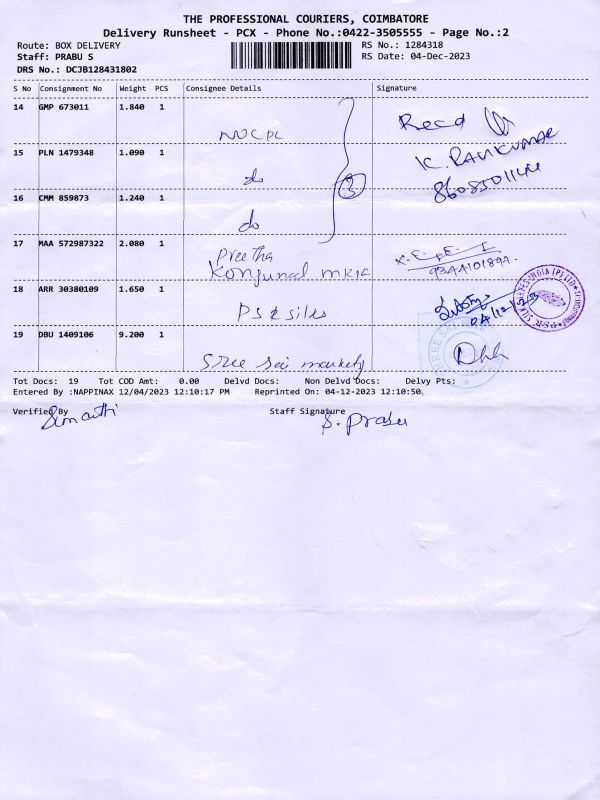 THE PROFESSIONAL COURIERS, COIMBATORE
Delivery Runsheet - PCX - Phone No.:0422-3505555 - Page No.:2
Route: BOX DELIVERY RS No.: 1284318
Staff: PRABU S RS Date: 04-Dec-2023
DRS No.: DCJB128431802
S No Consignment No Weight PCS Consignee Details Signature
14 GMP 673011 1.840 1
Recd
15 PLN 1479348 1.090 1 do K. RAVIKUMAR
3
16 CMM 859873 1.240 1 do
17 MAA 572987322 2.080 1 Preetha
18 ARR 30380109 1.650 1 silks
04/12/23
19 DBU 1409106 9.200 1 Sree sai
Tot Docs: 19 Tot COD Amt: 0.00 Delvd Docs: Non Delvd Docs: Delvy Pts:
Entered By :NAPPINAX 12/04/2023 12:10:17 PM Reprinted On: 04-12-2023 12:10:50
Verified By Staff Signature
S. Prabu